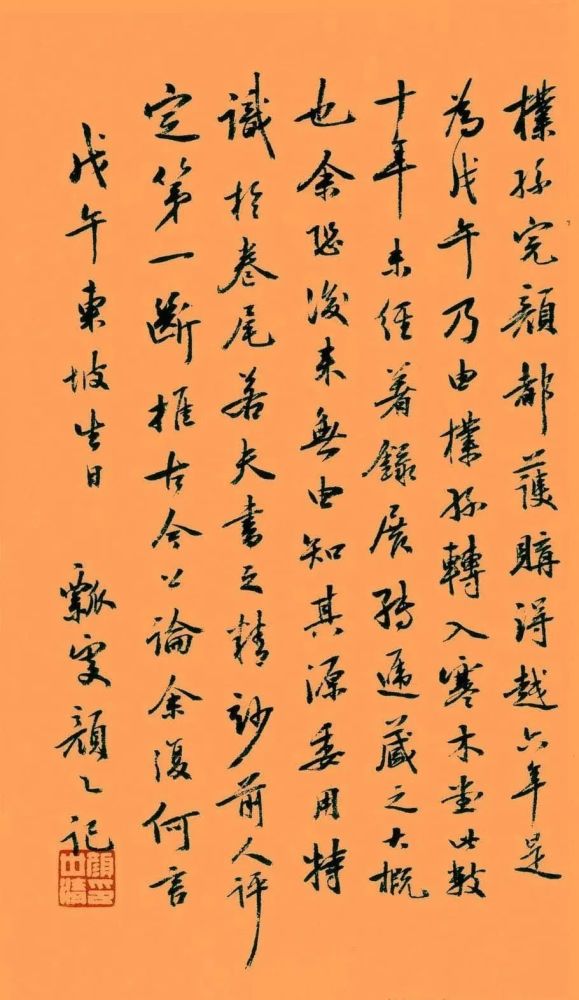 樸孫完顏都護購得越六年是
為戊午乃由樸孫轉入寒木堂此數
十年未經著錄展轉遞藏之大概
也余恐後来無由知其源委用特
識於卷尾若夫書之精妙前人評
定第一斷推古今公論余復何言
戊午東坡生日 瓢叟顏氏記